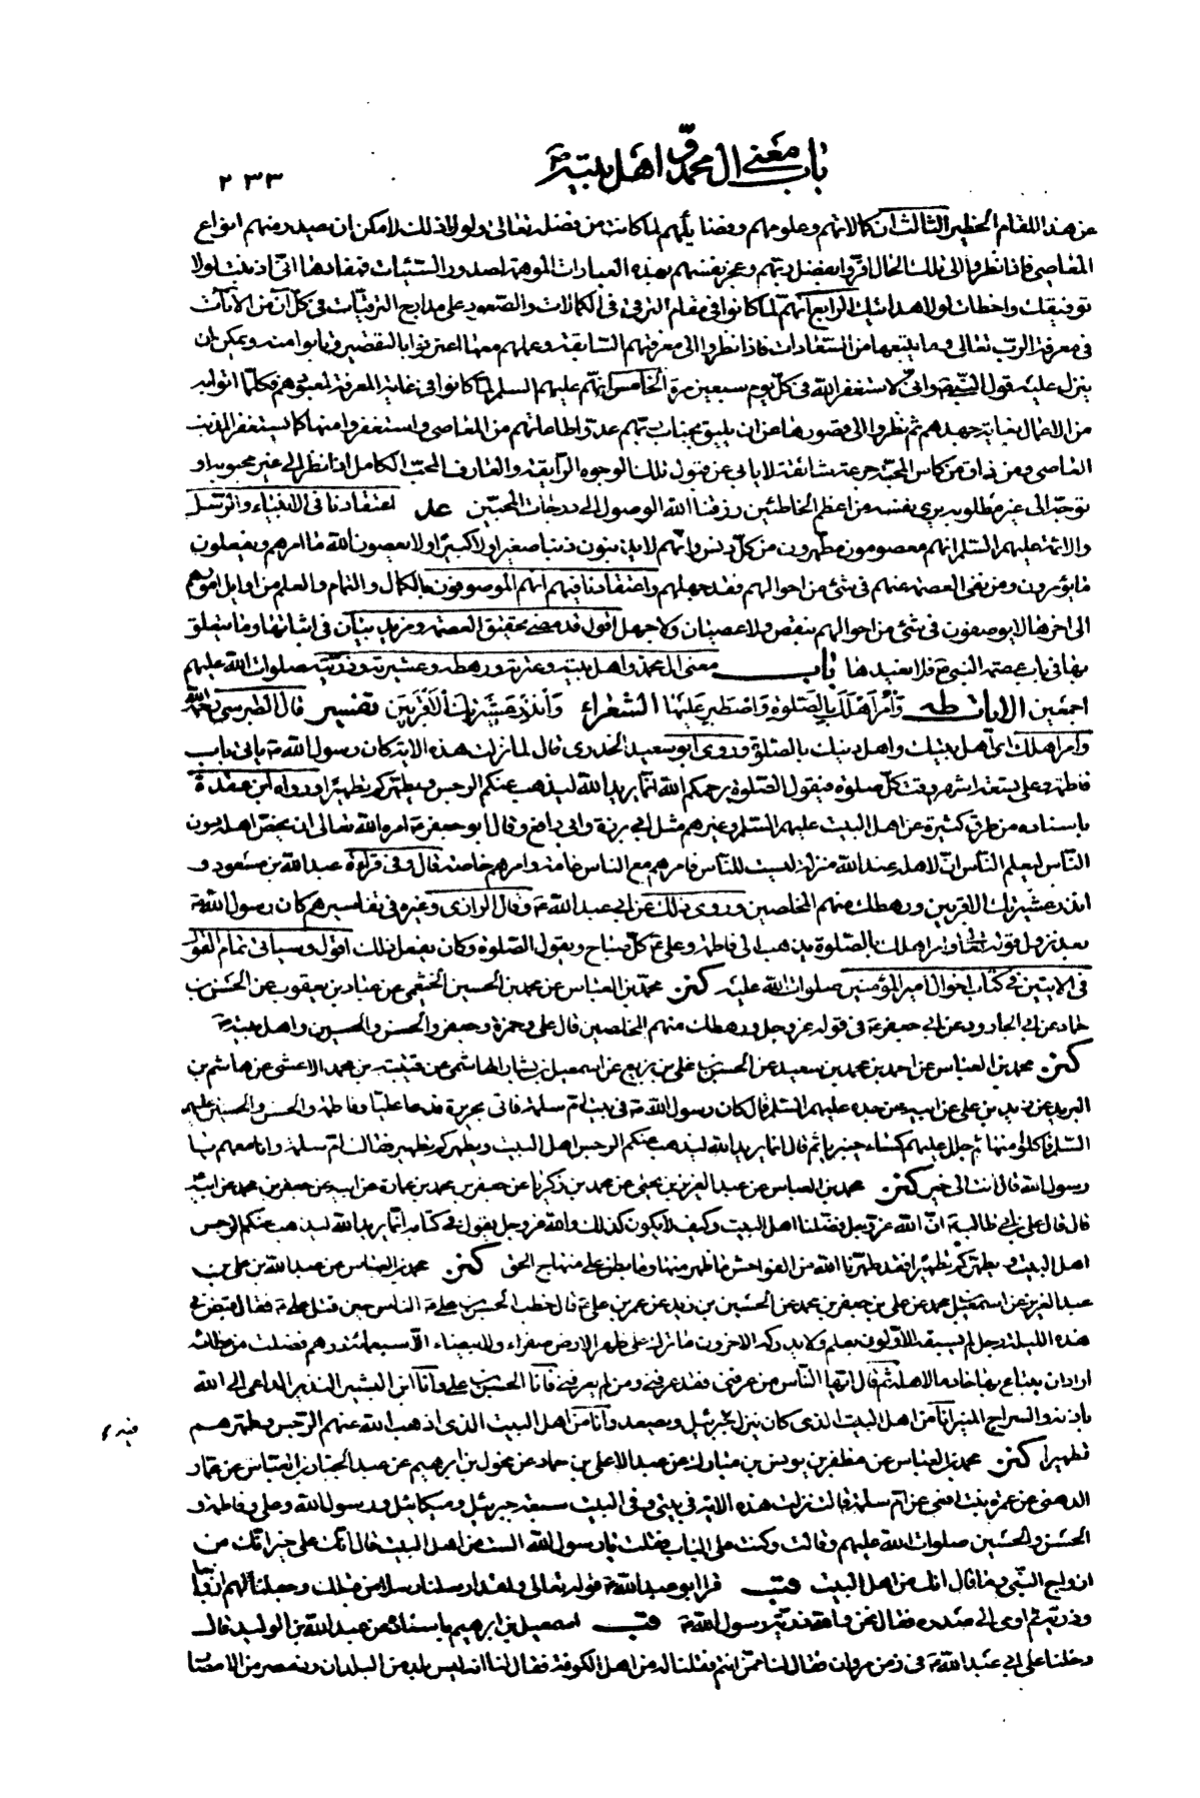 باب معنى ال محمد و اهل بيته
٢٣٣
عن هذا المقام الخطير الثالث ان كمالاتهم وعلومهم وفضايلهم لما كانت من فضله تعالى ولولا ذلك لامكن ان يصدر منهم انواع
المعاصي فاذا نظروا الى تلك الحال اقروا بفضل ربهم وعجز نفسهم بهذه العبارات الموهمة لصدور السيئات فمفادها اني اذنبت لولا
توفيقك واخطات لولا هدايتك الرابع انهم لما كانوا في مقام الترقي في الكمالات والصعود على مدارج الترقيات في كل ان من الانات
في معرفة الرب تعالى وما يتبعها من السعادات فاذا نظروا الى معرفتهم السابقة وعملهم معها اعترفوا بالتقصير وتابوا منه ويمكن ان
ينزل عليه قول النبي ص واني لاستغفر الله في كل يوم سبعين مرة الخامس انهم عليهم السلم لما كانوا في غاية المعرفة لمعبودهم فكلما اتوا به
من الاعمال بغاية جهدهم ثم نظروا الى قصورها عن ان يليق بجناب ربهم عدوا طاعاتهم من المعاصي واستغفروا منها كما يستغفر المذنب
العاصي ومن ذاق من كاس المحبة جرعة شائقة لا يابى عن قبول تلك الوجوه الرايقة والعارف المحب الكامل اذا نظر الى غير محبوبه او
توجه الى غير مطلوبه يرى نفسه من اعظم الخاطئين رزقنا الله الوصول الى درجات المحبين عد اعتقادنا في الانبياء والرسل
والائمة عليهم السلم انهم معصومون مطهرون من كل دنس وانهم لا يذنبون ذنبا صغيرا ولا كبيرا ولا يعصون الله ما امرهم ويفعلون
ما يؤمرون ومن نفى العصمة عنهم في شئ من احوالهم فقد جهلهم واعتقادنا فيهم انهم الموصوفون بالكمال والتمام والعلم من اوايل امورهم
الى اخرها لا يوصفون في شئ من احوالهم بنقص ولا عصيان ولا جهل اقول قد مضى تحقيق العصمة ومزيد بيان في اثباتها وما يتعلق
بها في باب عصمة النبي ص فلا نعيدها باب معنى ال محمد واهل بيته وعترته ورهطه وعشيرته وذريته صلوات الله عليهم
اجمعين الايات طه وأمر اهلك بالصلوة واصطبر عليها الشعراء وانذر عشيرتك الاقربين تفسير قال الطبرسي رحمه الله
وأمر اهلك اي اهل بيتك واهل دينك بالصلوة وروى ابو سعيد الخدري قال لما نزلت هذه الاية كان رسول الله ص ياتي باب
فاطمة وعلي تسعة اشهر وقت كل صلوة فيقول الصلوة يرحمكم الله انما يريد الله ليذهب عنكم الرجس ويطهركم تطهيرا ورواه ابن عقدة
باسناده من طرق كثيرة عن اهل البيت عليهم السلم وغيرهم مثل ابي برزة وابي رافع وقال ابو جعفر ع امره الله تعالى ان يخص اهله دون
الناس ليعلم الناس ان لاهله عند الله منزلة ليست للناس فامرهم مع الناس عامة وامرهم خاصة قال وفي قراءة عبد الله بن مسعود و
انذر عشيرتك الاقربين ورهطك منهم المخلصين وروي ذلك عن ابي عبد الله ع وقال الرازي وغيره في تفاسيرهم كان رسول الله ص
بعد نزول قوله تعالى وامر اهلك بالصلوة يذهب الى فاطمة وعلي ع كل صباح ويقول الصلوة وكان يفعل ذلك اقول وسياتي تمام القول
في الايتين في كتاب احوال امير المؤمنين صلوات الله عليه كنز محمد بن العباس عن محمد بن الحسين الخثعمي عن عباد بن يعقوب عن الحسن بن
حماد عن ابي الجارود عن ابي جعفر ع في قوله عز وجل ورهطك منهم المخلصين قال علي وحمزة وجعفر والحسن والحسين واهل بيته
كنز محمد بن العباس عن احمد بن محمد بن سعيد عن الحسن بن علي بن بزيع عن اسمعيل بن بشار الهاشمي عن قتيبة بن محمد الاعشى عن هاشم بن
البريد عن زيد بن علي عن ابيه عن جده عليهم السلم قال كان رسول الله ص في بيت ام سلمة فاتي بحريرة فدعا عليا وفاطمة والحسن والحسين عليهم
السلم فاكلوا منها ثم جلل عليهم كساء خيبريا ثم قال انما يريد الله ليذهب عنكم الرجس اهل البيت ويطهركم تطهيرا فقالت ام سلمة وانا معهم يا
رسول الله قال انت الى خير كنز محمد بن العباس عن عبد العزيز بن يحيى عن محمد بن زكريا عن جعفر بن محمد بن عمارة عن ابيه عن جعفر بن محمد عن ابيه
قال قال علي بن ابي طالب ع ان الله عز وجل فضلنا اهل البيت وكيف لا يكون كذلك والله عز وجل يقول في كتابه انما يريد الله ليذهب عنكم الرجس
اهل البيت ويطهركم تطهيرا فقد طهرنا الله من الفواحش ما ظهر منها وما بطن على منهاج الحق كنز محمد بن العباس عن عبد الله بن علي بن
عبد العزيز عن اسمعيل بن محمد عن علي بن جعفر بن محمد عن الحسين بن زيد عن عمر بن علي ع قال خطب الحسن بن علي ع الناس حين قتل علي ع فقال قبض في
هذه الليلة رجل لم يسبقه الاولون بعلم ولا يدركه الاخرون ما ترك على ظهر الارض صفراء ولا بيضاء الا سبعمائة درهم فضلت من عطائه
اراد ان يبتاع بها خادما لاهله ثم قال ايها الناس من عرفني فقد عرفني ومن لم يعرفني فانا الحسن بن علي وانا ابن البشير النذير الداعي الى الله
باذنه والسراج المنير انا من اهل البيت الذي كان ينزل جبرئيل ويصعد وانا من اهل البيت الذي اذهب الله عنهم الرجس وطهرهم
فيه
تطهيرا كنز محمد بن العباس عن مظفر بن يونس بن مبارك عن عبد الاعلى بن حماد عن مخول بن ابرهيم عن عبد الجبار بن العباس عن عمار
الدهني عن عمرة بنت افعى عن ام سلمة قالت نزلت هذه الاية في بيتي وفي البيت سبعة جبرئيل وميكائيل ورسول الله وعلي وفاطمة و
الحسن والحسين صلوات الله عليهم وقالت وكنت على الباب فقلت يا رسول الله الست من اهل البيت قال انك على خير انك من
ازواج النبي وما قال انك من اهل البيت قب قرا ابو عبد الله ع قوله تعالى ولقد ارسلنا رسلا من قبلك وجعلنا لهم ازواجا
وذرية ثم اومى الى صدره فقال نحن والله ذرية رسول الله ص قب اسمعيل بن ابرهيم باسناده عن عبد الله بن الوليد قال
دخلنا على ابي عبد الله ع في زمن مروان فقال لنا ممن انتم فقلنا له من اهل الكوفة فقال لنا انه ليس بلد من البلدان ومصر من الامصار